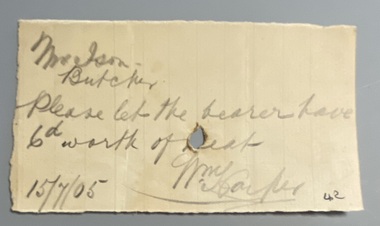 Mr Ison
Butcher
Please let the bearer have
6d worth of meat
Wm Harper
15/7/05
42